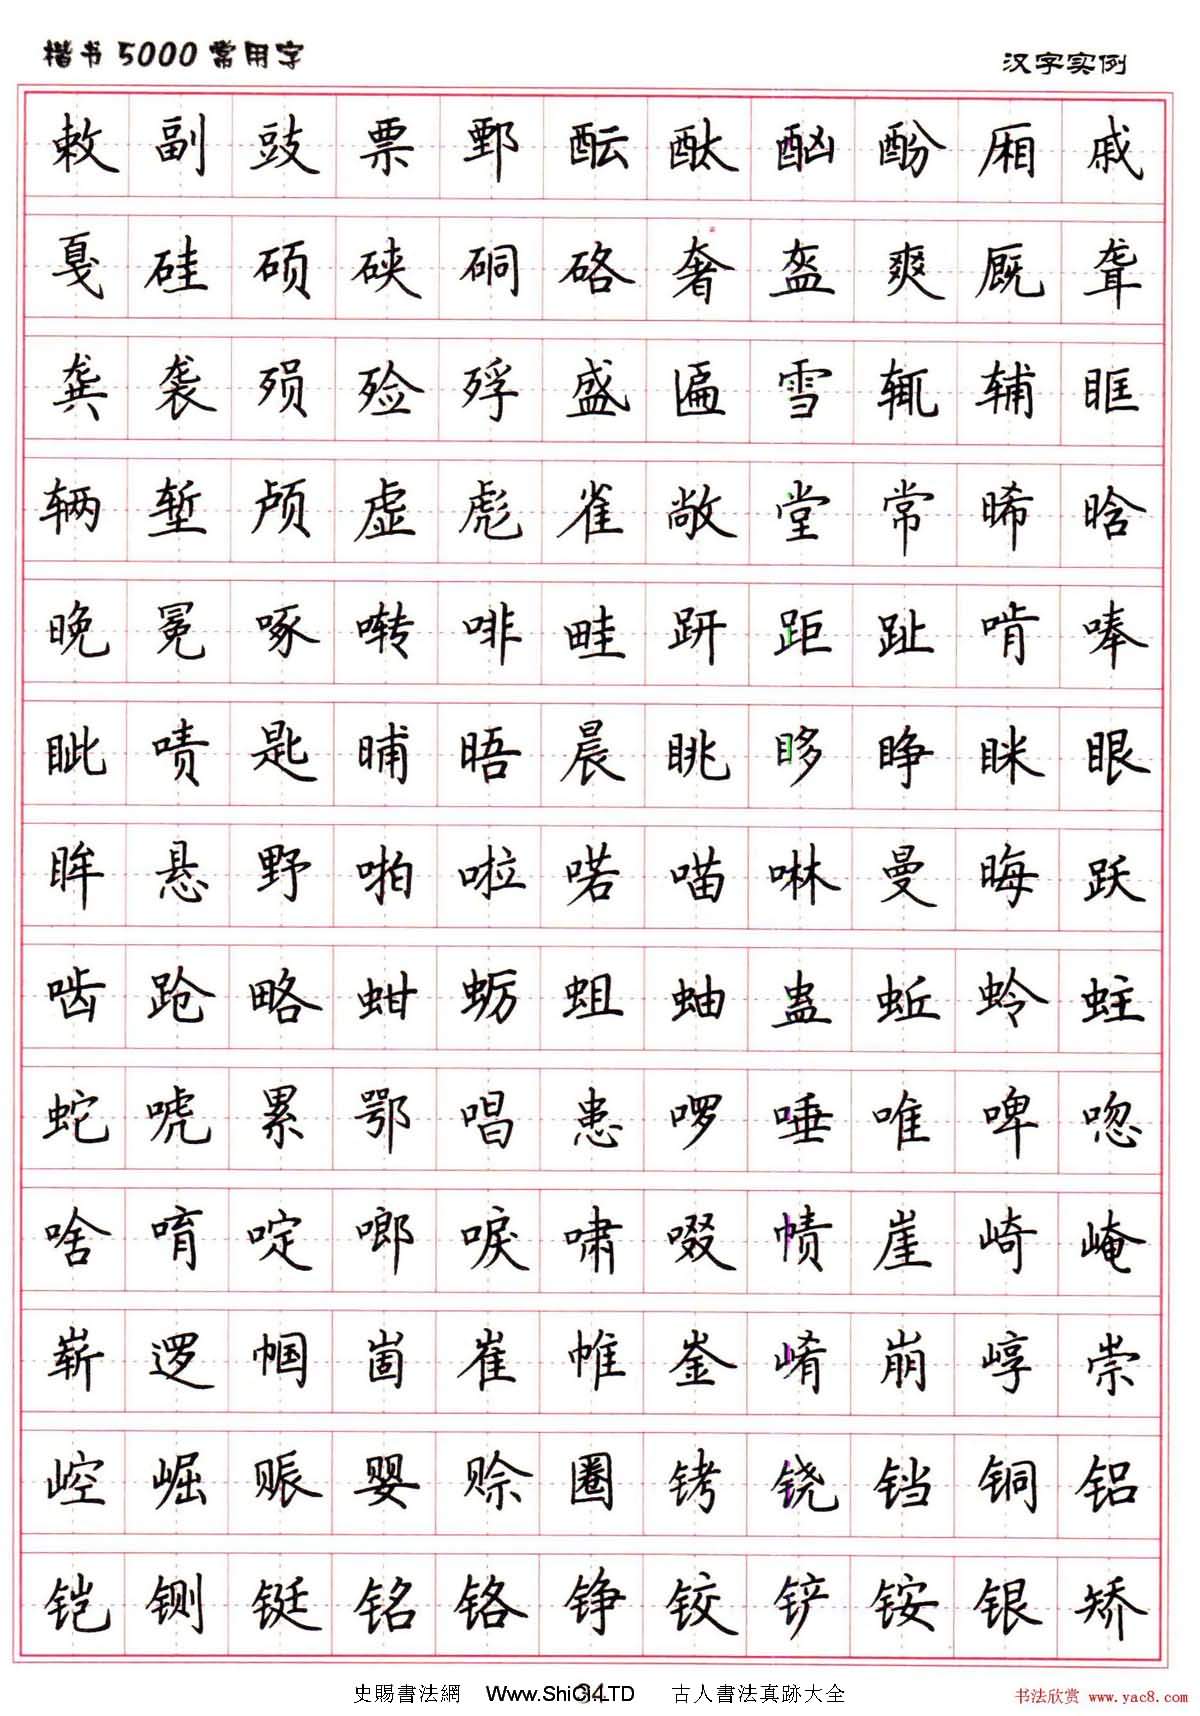 楷书5000常用字 汉字实例
敕 副 豉 票 鄄 酝 酞 酗 酚 厢 戚
戛 硅 硕 硖 硐 硌 奢 盔 爽 厩 聋
龚 袭 殒 殓 殍 盛 匾 雪 辄 辅 眶
辆 堑 颅 虚 彪 雀 敞 堂 常 晞 晗
晚 冕 啄 啭 啡 畦 趼 距 趾 啃 唪
眦 啧 匙 晡 晤 晨 眺 眵 睁 眯 眼
眸 悬 野 啪 啦 喏 喵 啉 曼 晦 跃
啮 跄 略 蚶 蛎 蛆 蚰 蛊 蚯 蛉 蛀
蛇 唬 累 鄂 唱 患 啰 唾 唯 啤 唿
啥 唷 啶 啷 唳 啸 啜 帻 崖 崎 崦
崭 逻 帼 崮 崔 帷 崟 崤 崩 崞 崇
崆 崛 赈 婴 赊 圈 铐 铙 铛 铜 铝
铠 铡 铤 铭 铬 铮 铰 铲 铵 银 矫
史賜書法網 Www.ShiCi.LTD 古人書法真跡大全
书法欣赏 www.yac8.com